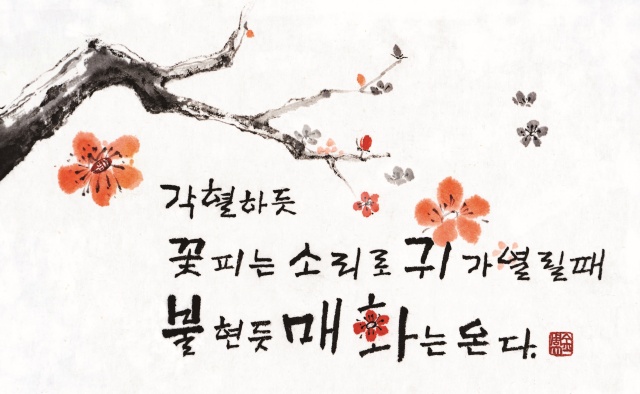 각혈하듯
꽃피는 소리로 귀가 열릴때
불현듯 매화는 온다.